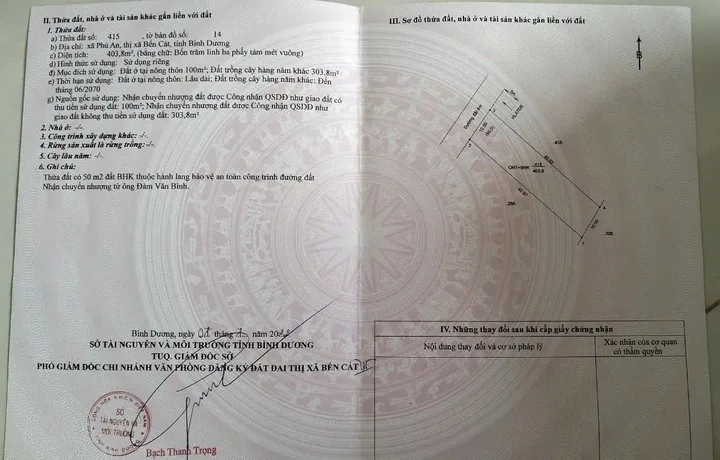 II. Thửa đất, nhà ở và tài sản khác gắn liền với đất
1. Thửa đất:
a) Thửa đất số: 415 , tờ bản đồ số: 14
b) Địa chỉ: xã Phú An, thị xã Bến Cát, tỉnh Bình Dương
c) Diện tích: 403,8m², (bằng chữ: Bốn trăm linh ba phẩy tám mét vuông)
d) Hình thức sử dụng: Sử dụng riêng
đ) Mục đích sử dụng: Đất ở tại nông thôn 100m²; Đất trồng cây hàng năm khác 303,8m²
e) Thời hạn sử dụng: Đất ở tại nông thôn: Lâu dài; Đất trồng cây hàng năm khác: Đến
tháng 06/2070
g) Nguồn gốc sử dụng: Nhận chuyển nhượng đất được Công nhận QSDĐ như giao đất có
thu tiền sử dụng đất: 100m²; Nhận chuyển nhượng đất được Công nhận QSDĐ như
giao đất không thu tiền sử dụng đất: 303,8m²
2. Nhà ở: -/-
3. Công trình xây dựng khác: -/-
4. Rừng sản xuất là rừng trồng: -/-
5. Cây lâu năm: -/-
6. Ghi chú:
Thửa đất có 50 m2 đất BHK thuộc hành lang bảo vệ an toàn công trình đường đất
Nhận chuyển nhượng từ ông Đàm Văn Bình.
Bình Dương, ngày tháng năm
SỞ TÀI NGUYÊN VÀ MÔI TRƯỜNG TỈNH BÌNH DƯƠNG
TUQ. GIÁM ĐỐC SỞ
PHÓ GIÁM ĐỐC CHI NHÁNH VĂN PHÒNG ĐĂNG KÝ ĐẤT ĐAI THỊ XÃ BẾN CÁT
SỞ
TÀI NGUYÊN VÀ
MÔI TRƯỜNG
Bạch Thanh Trọng
III. Sơ đồ thửa đất, nhà ở và tài sản khác gắn liền với đất
B
Đường đất
HLATĐB
10.00
416
ONT+BHK
415
403.8
40.97
10.00
IV. Những thay đổi sau khi cấp giấy chứng nhận
Nội dung thay đổi và cơ sở pháp lý
Xác nhận của cơ quan
có thẩm quyền